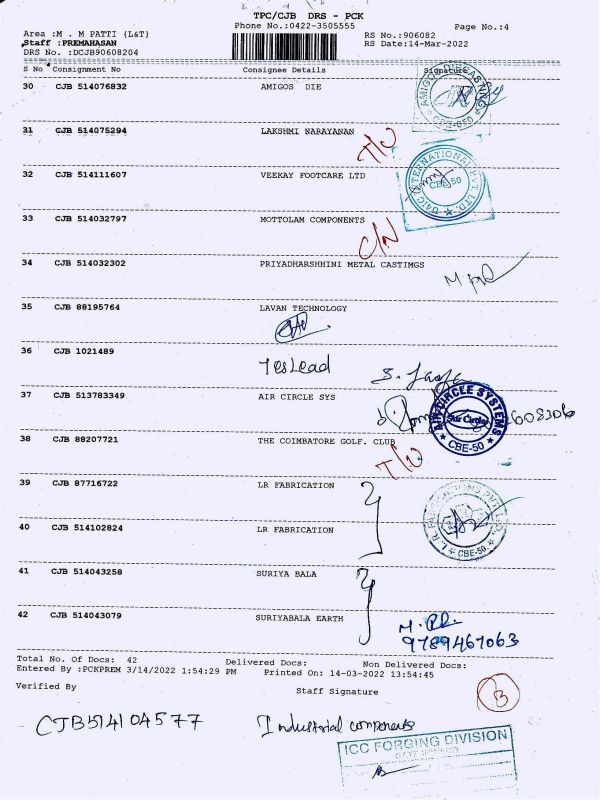 TPC/CJB DRS - PCK
Phone No.:0422-3505555 Page No.:4
Area :M . M PATTI {L&T} RS No.:906082
Staff :PREMAHASAN RS Date:14-Mar-2022
DRS No. :DCJB90608204
S No Consignment No Consignee Details Signature
30 CJB 514076832 AMIGOS DIE
AMIGOS DIECASTING
31 CJB 514075294 LAKSHMI NARAYANAN
32 CJB 514111607 VEEKAY FOOTCARE LTD
INTERNATIONAL PVT LTD.
CBE-50
33 CJB 514032797 MOTTOLAM COMPONENTS
34 CJB 514032302 PRIYADHARSHHINI METAL CASTIMGS
35 CJB 88195764 LAVAN TECHNOLOGY
36 CJB 1021489
37 CJB 513783349 AIR CIRCLE SYS
AIR CIRCLE SYSTEMS
Air Circle
CBE-50
38 CJB 88207721 THE COIMBATORE GOLF. CLUB
39 CJB 87716722 LR FABRICATION
CBE-50
40 CJB 514102824 LR FABRICATION
41 CJB 514043258 SURIYA BALA
42 CJB 514043079 SURIYABALA EARTH
9789467063
Total No. Of Docs: 42 Delivered Docs: Non Delivered Docs:
Entered By :PCKPREM 3/14/2022 1:54:29 PM Printed On: 14-03-2022 13:54:45
Verified By Staff Signature
B
CJB514104577 Industrial components
ICC FORGING DIVISION